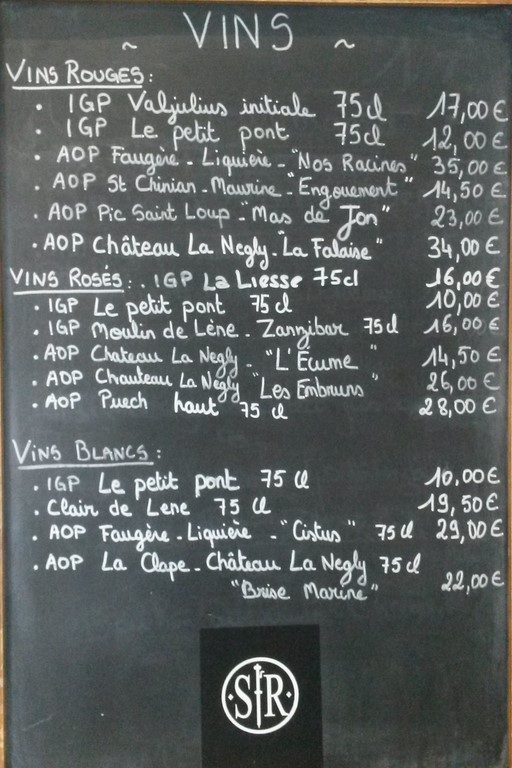 ~ VINS ~
VINS ROUGES :
· IGP Valjulius initiale 75cl 17,00 €
· IGP Le petit pont 75cl 12,00 €
· AOP Faugère - Liquière - "Nos Racines" 35,00 €
· AOP St Chinian - Maurine "Engouement" 14,50 €
· AOP Pic Saint Loup - "Mas de Jon" 23,00 €
· AOP Château La Negly - "La Falaise" 34,00 €
VINS ROSÉS : . IGP La Liesse 75cl 16,00 €
· IGP Le petit pont 75cl 10,00 €
· IGP Moulin de Lène - Zanzibar 75cl 16,00 €
· AOP Chateau La Negly - "L'Écume" 14,50 €
· AOP Chauteau La Negly "Les Embruns" 26,00 €
· AOP Puech haut 75 cl 28,00 €
VINS BLANCS :
· IGP Le petit pont 75 cl 10,00 €
· Clair de Lene 75 cl 19,50 €
· AOP Faugère - Liquière - "Cistus" 75cl 29,00 €
· AOP La Clape - Château La Negly 75cl
"Brise Marine" 22,00 €
SfR